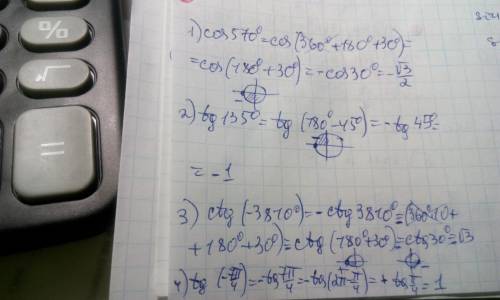 1) cos570°=cos(360°+180°+30°)=
=cos(180°+30°)=-cos30°=-√3/2
2) tg135°=tg(180°-45°)=-tg45°=
=-1
3) ctg(-3810°)=-ctg3810°=(360°·10+
+180°+30°)=ctg(180°+30°)=ctg30°=√3
4) tg(-7π/4)=-tg7π/4=-tg(2π-π/4)=+tgπ/4=1
%
√
=